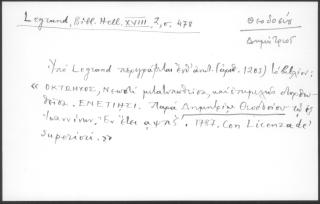 Legrand, Bibl. Hell. XVIII, 2, σ. 478
Θεοδοσίου
Δημήτριος
Ὑπὸ Legrand περιγράφεται ὑπ' ἀριθ. (ἀριθ. 1203) τὸ βιβλίον:
« ΟΚΤΩΗΧΟΣ, Νεωστὶ μετατυπωθεῖσα, καὶ ἐπιμελῶς διορθω-
θεῖσα. ΕΝΕΤΙΗΣΙ. Παρὰ Δημητρίῳ Θεοδοσίου τῷ ἐξ
Ἰωαννίνων. Ἐν ἔτει αψπζ'. 1787. Con Licenza de'
Superiori. »